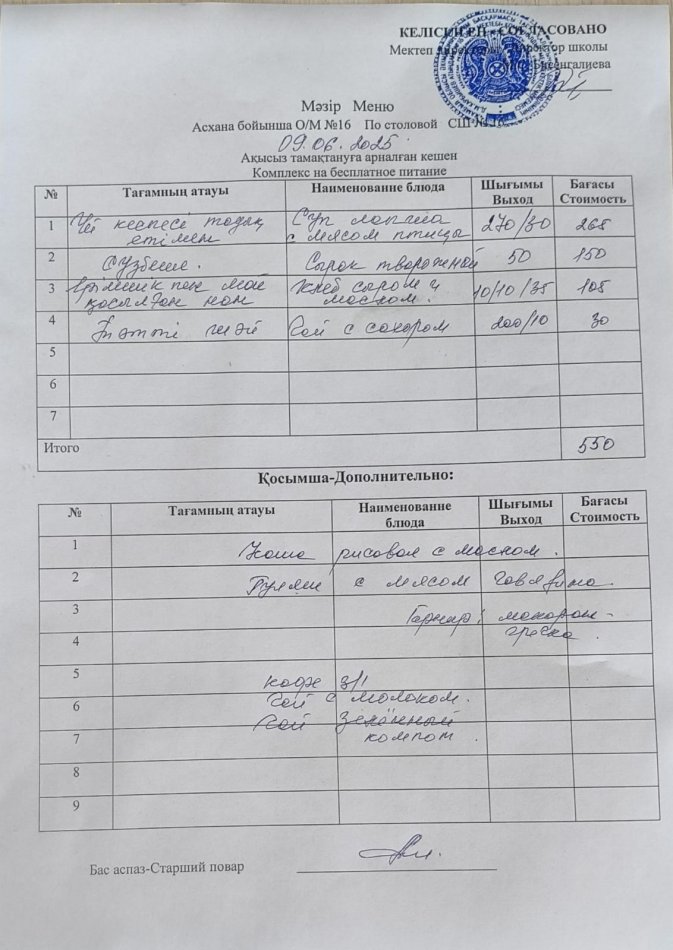 КЕЛІСІЛГЕН - СОГЛАСОВАНО
Мектеп директоры Директор школы
Бисенгалиева
Мәзір Меню
Асхана бойынша О/М №16 По столовой СШ №16
09.06.2025
Ақысыз тамақтануға арналған кешен
Комплекс на бесплатное питание
№ Тағамның атауы Наименование блюда Шығымы Выход Бағасы Стоимость
1 Үй кеспесі тауық етімен Суп лапша с мясом птицы 270/30 265
2 Сүзбеше. Сырок творожный 50 150
3 Ірімшик пен май қосылған нан Хлеб сыром и маслом. 10/10/35 105
4 Тәтті шәй Чай с сахаром 200/10 30
5
6
7
Итого 550
Қосымша-Дополнительно:
№ Тағамның атауы Наименование блюда Шығымы Выход Бағасы Стоимость
1 Каша рисовая с маслом.
2 Гуляш с мясом говядина.
3 Гарнир: макарон-
4 гречка.
5 кофе 3/1
6 Чай с молоком.
Чай зелённый
7 компот.
8
9
Бас аспаз-Старший повар